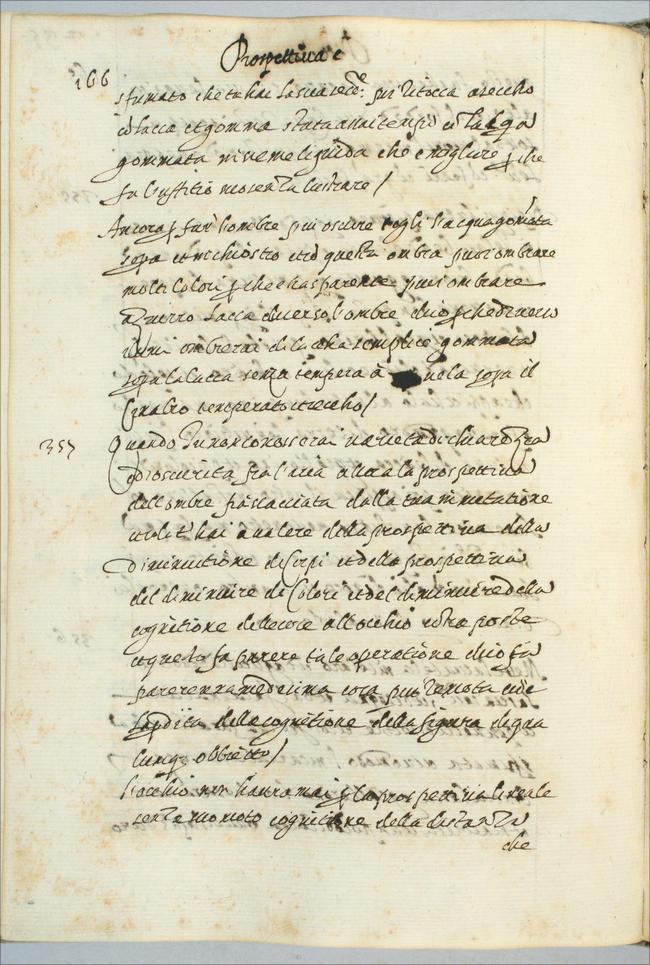 Prospettiua e
166
sfumato che tu hai lascia secc.º poi ritocca a secco
cō lacca et gomma stata assai tempo cō l'acqua
gommata insieme liquida che è migliore che
fa l'uffitio mo senza lustrare /
Ancora far l'ombre piu oscure togli l'acqua gomata
sopa et inchiostro et cō questa ombra puoi ombrare
molti Colori che è trasparente puoi ombrare
azzurro lacca diuerso l'ombre dico che diuersi
lumi ombrerai di lacca semplice gommata
sopa la lacca senza tempera sopa il
Cinabro temperato et secco /
357
Quando Tu non conoscerai uarieta di chiarezza
ò di oscurita fra l'aria allora la prospettiua
dell'ombre fia scacciata dalla tua imitatione
et solo t'hai à ualere della prospettiua della
Diminutione de Corpi et della prospettiua
del diminuire de Colori et del diminuire della
cognitione delle cose all'occhio contra poste
et questa fa parere tale operatione cioè fa
parere una medesima cosa piu remota cioè
la pdita della cognitione della figura di qua
lunqʒ obbietto /
l'occhio non haura mai la prospettiua lineale
senza suo moto cognitione della distanza
che